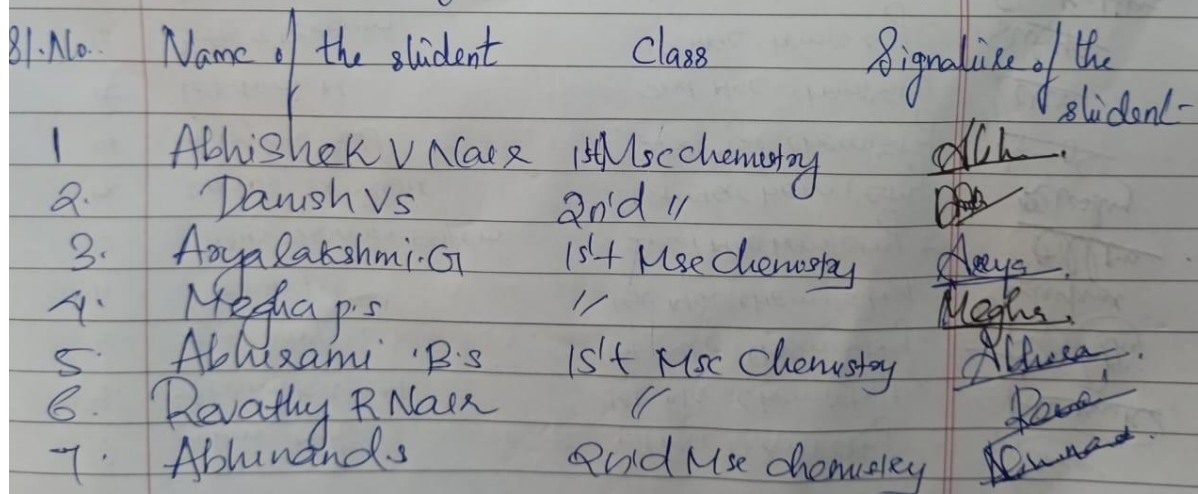 Sl.No. Name of the student Class Signature of the student
1 Abhishek V Nair 1st Msc chemistry Abh.
2. Danish VS 2nd "
3. Aryalakshmi.G 1st Msc chemistry Arya.
4. Megha p.s " Megha.
5. Abhirami .B.s 1st Msc Chemistry
6. Revathy R Nair "
7. Abhinand.s 2nd Msc chemistry